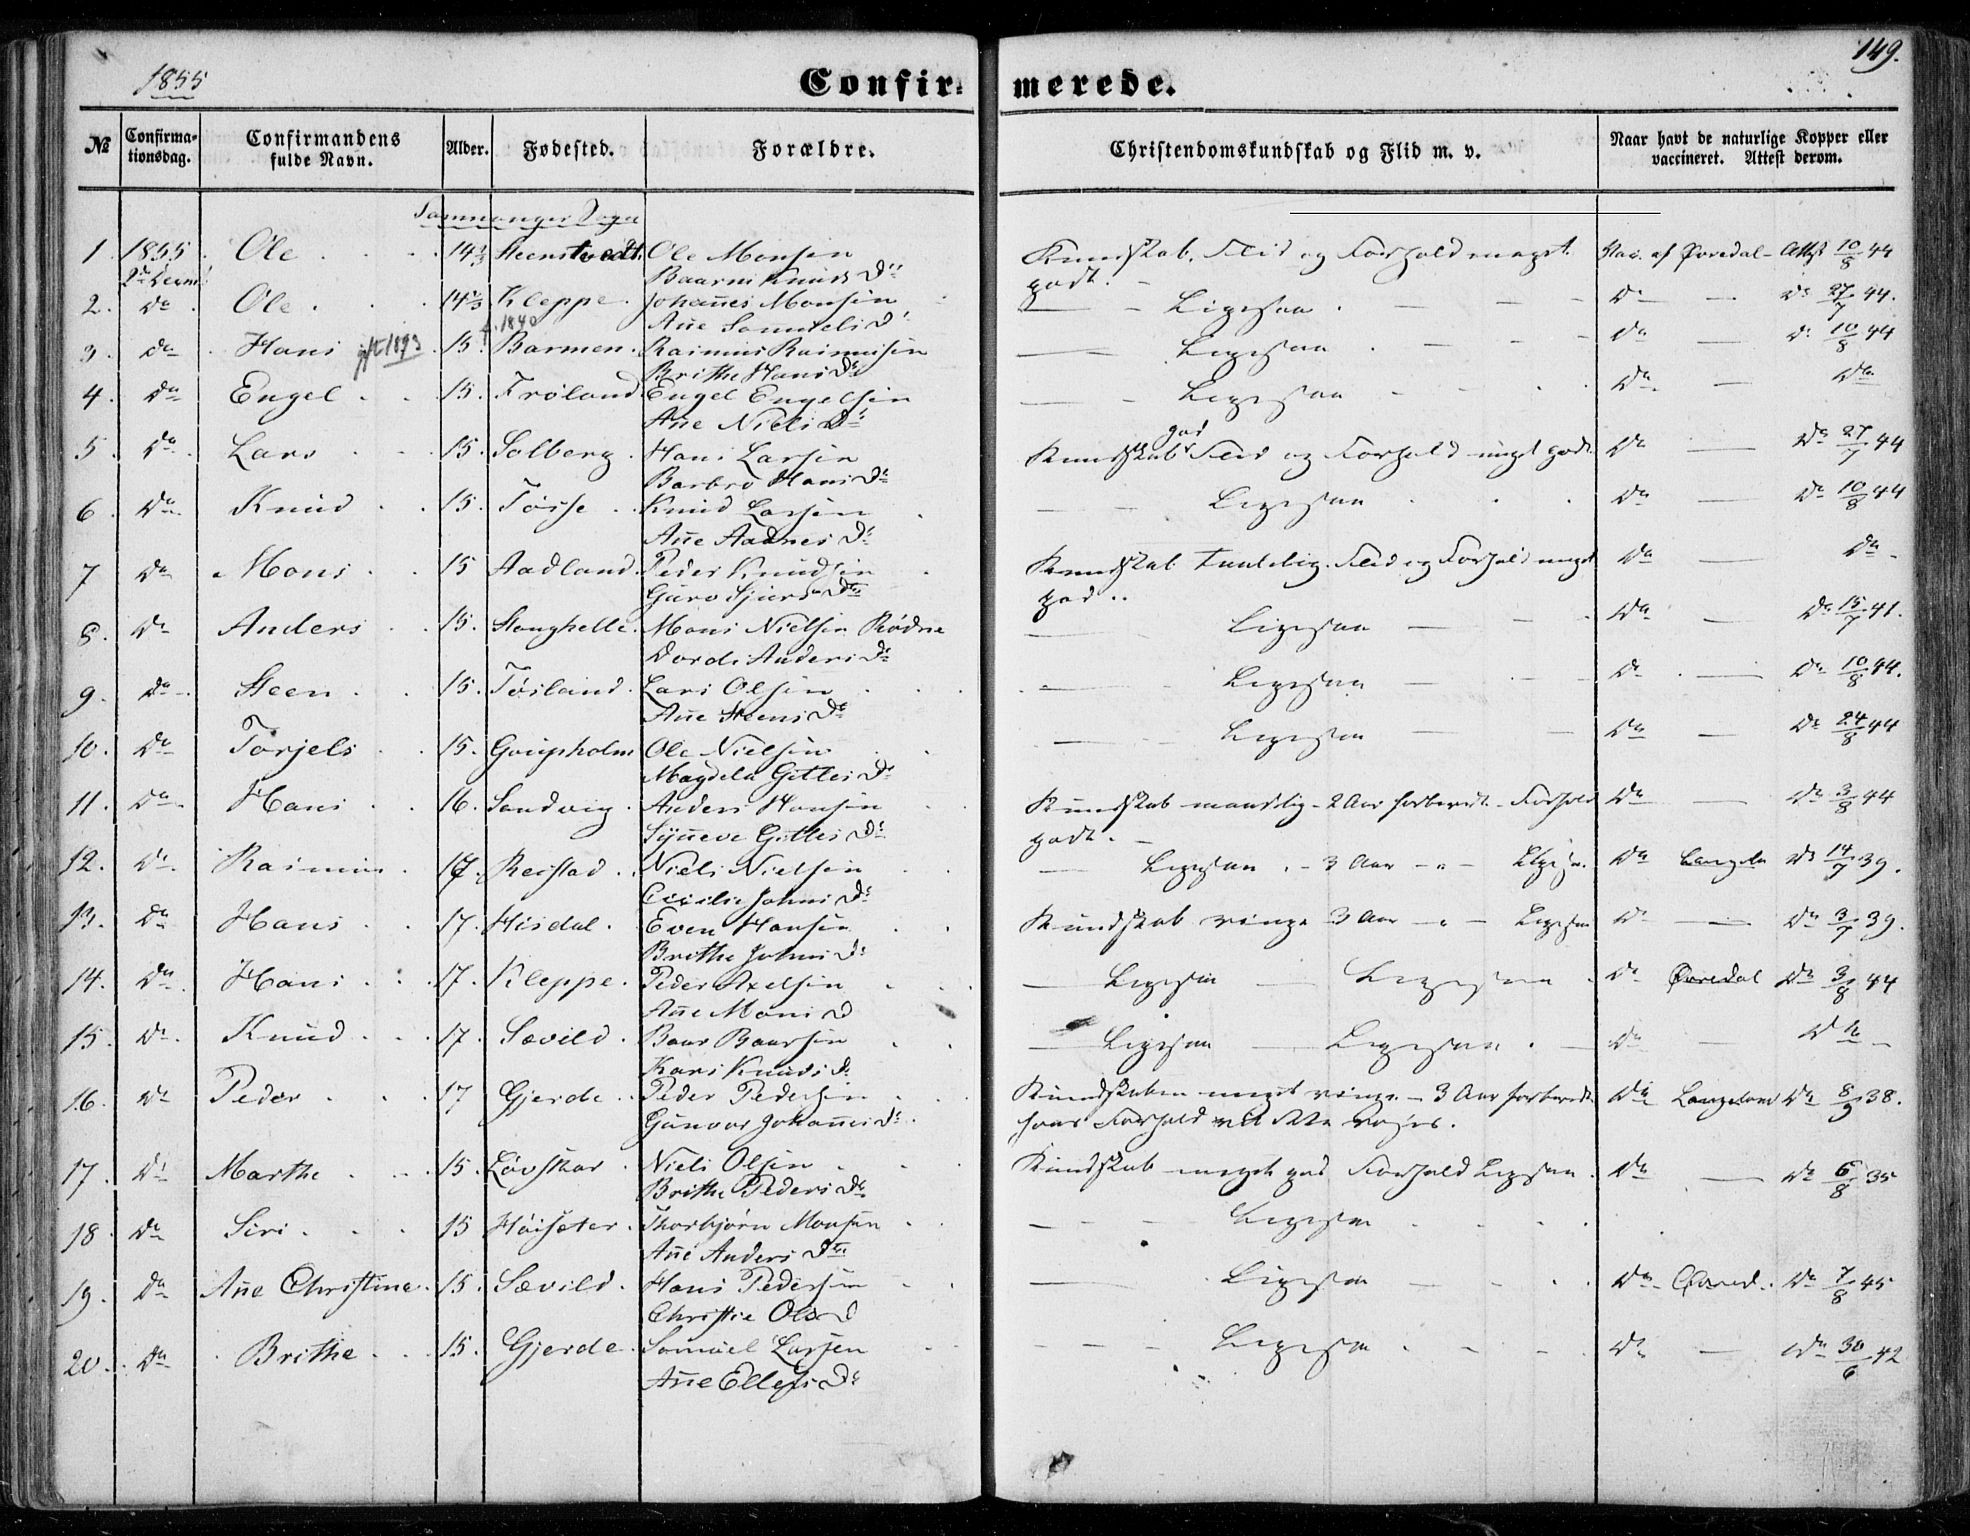 149.
1855
Confir= merede.
№ Confirma=tionsdag. Confirmandens fulde Navn. Alder. Fødested. Forældre. Christendomskundskab og Flid m. v. Naar havt de naturlige Kopper eller vaccineret. Attest derom.
Samnanger Sogn
1. 1855 Ole 14 1/3 Steensvedt. Ole Monsen Kundskab, Flid og Forhold meget Vac. af Attest 10/8 44
Knuds Dr godt.
2. Do Ole 14 1/3 Kleppe. Johannes Monsen Ligesaa Do Do 27/7 44.
f. 1840 Ane Samuels D
3. Do Hans gift 1893 15. Barmen. Rasmus Rasmusen Ligesaa Do Do 10/8 44
Brithe Hans Dr
4. Do Engel 15. Frøland Engel Engelsen Ligesaa Do Do
Ane Niels Dr
5. Do Lars 15. Solberg. Hans Larsen Kundskab god Flid og Forhold meget godt Do Do 27/7 44
Barbro Hans Dr
6. Do Knud 15. Tøsse Knud Larsen Ligesaa Do Do 10/8 44
Ane Aadnes Dr
7 Do Mons 15 Aadland. Peder Knudsen Kundskab temlig. Flid og Forhold meget Do Do
Guro Sjurs Dr god
8. Do Anders 15. Stenghelle. Mons Nielsen Rødne Ligesaa Do Do 15/7 41.
Dordi Anders Dr
9. Do Steen 15. Tøsland. Lars Olsen Ligesaa Do Do 10/8 44.
Ane Steens Dr
10. Do Torjels 15. Gripholm Ole Nielsen Ligesaa Do Do 24/8 44
Magdela Gitles Dr
11. Do Hans 16. Sandvig. Anders Hansen Kundskab maadelig - 2 Aar forberedt - Forhold Do Do 3/8 44
Synneve Gitles Dr godt.
12. Do Rasmus 17. Reistad Niels Nielsen Ligesaa - 3 Aar - " - Do Do 14/7 39.
Cicilie Johns Dr
13. Do Hans 17. Hisdal. Even Hansen Kundskab ringe 3 Aar - " - Ligesaa Do Do 3/7 39.
Brithe Johns Dr
14. Do Hans 17. Kleppe. Peder Axelsen Ligesaa Ligesaa Do Do 3/8 44
Ane Mons D
15. Do Knud 17. Sævild. Baar Baarsen Ligesaa Ligesaa. Do Do
Kari Knuds D
16. Do Peder 17 Gjerde Peder Pedersen Kundskaben meget ringe - 3 Aar forberedt Do Do 8/9 38.
Gunvor Johannes Dr. hans Forhold
17. Do Marthe 15. Løvskar Niels Olsen Kundskab meget god Forhold Ligesaa. Do Do 6/8 35
Brithe Peders Dr
18. Do Siri 15 Høiseter. Thorbjørn Monsen Ligesaa
Ane Anders Dr
19. Do Ane Christine. 15. Sævild. Hans Pedersen Ligesaa Do Do 7/8 45
Christie Ols D
20. Do Brithe 15. Gjerde Samuel Larsen Ligesaa Do Do 30/6 42
Ane Ellefs Dr